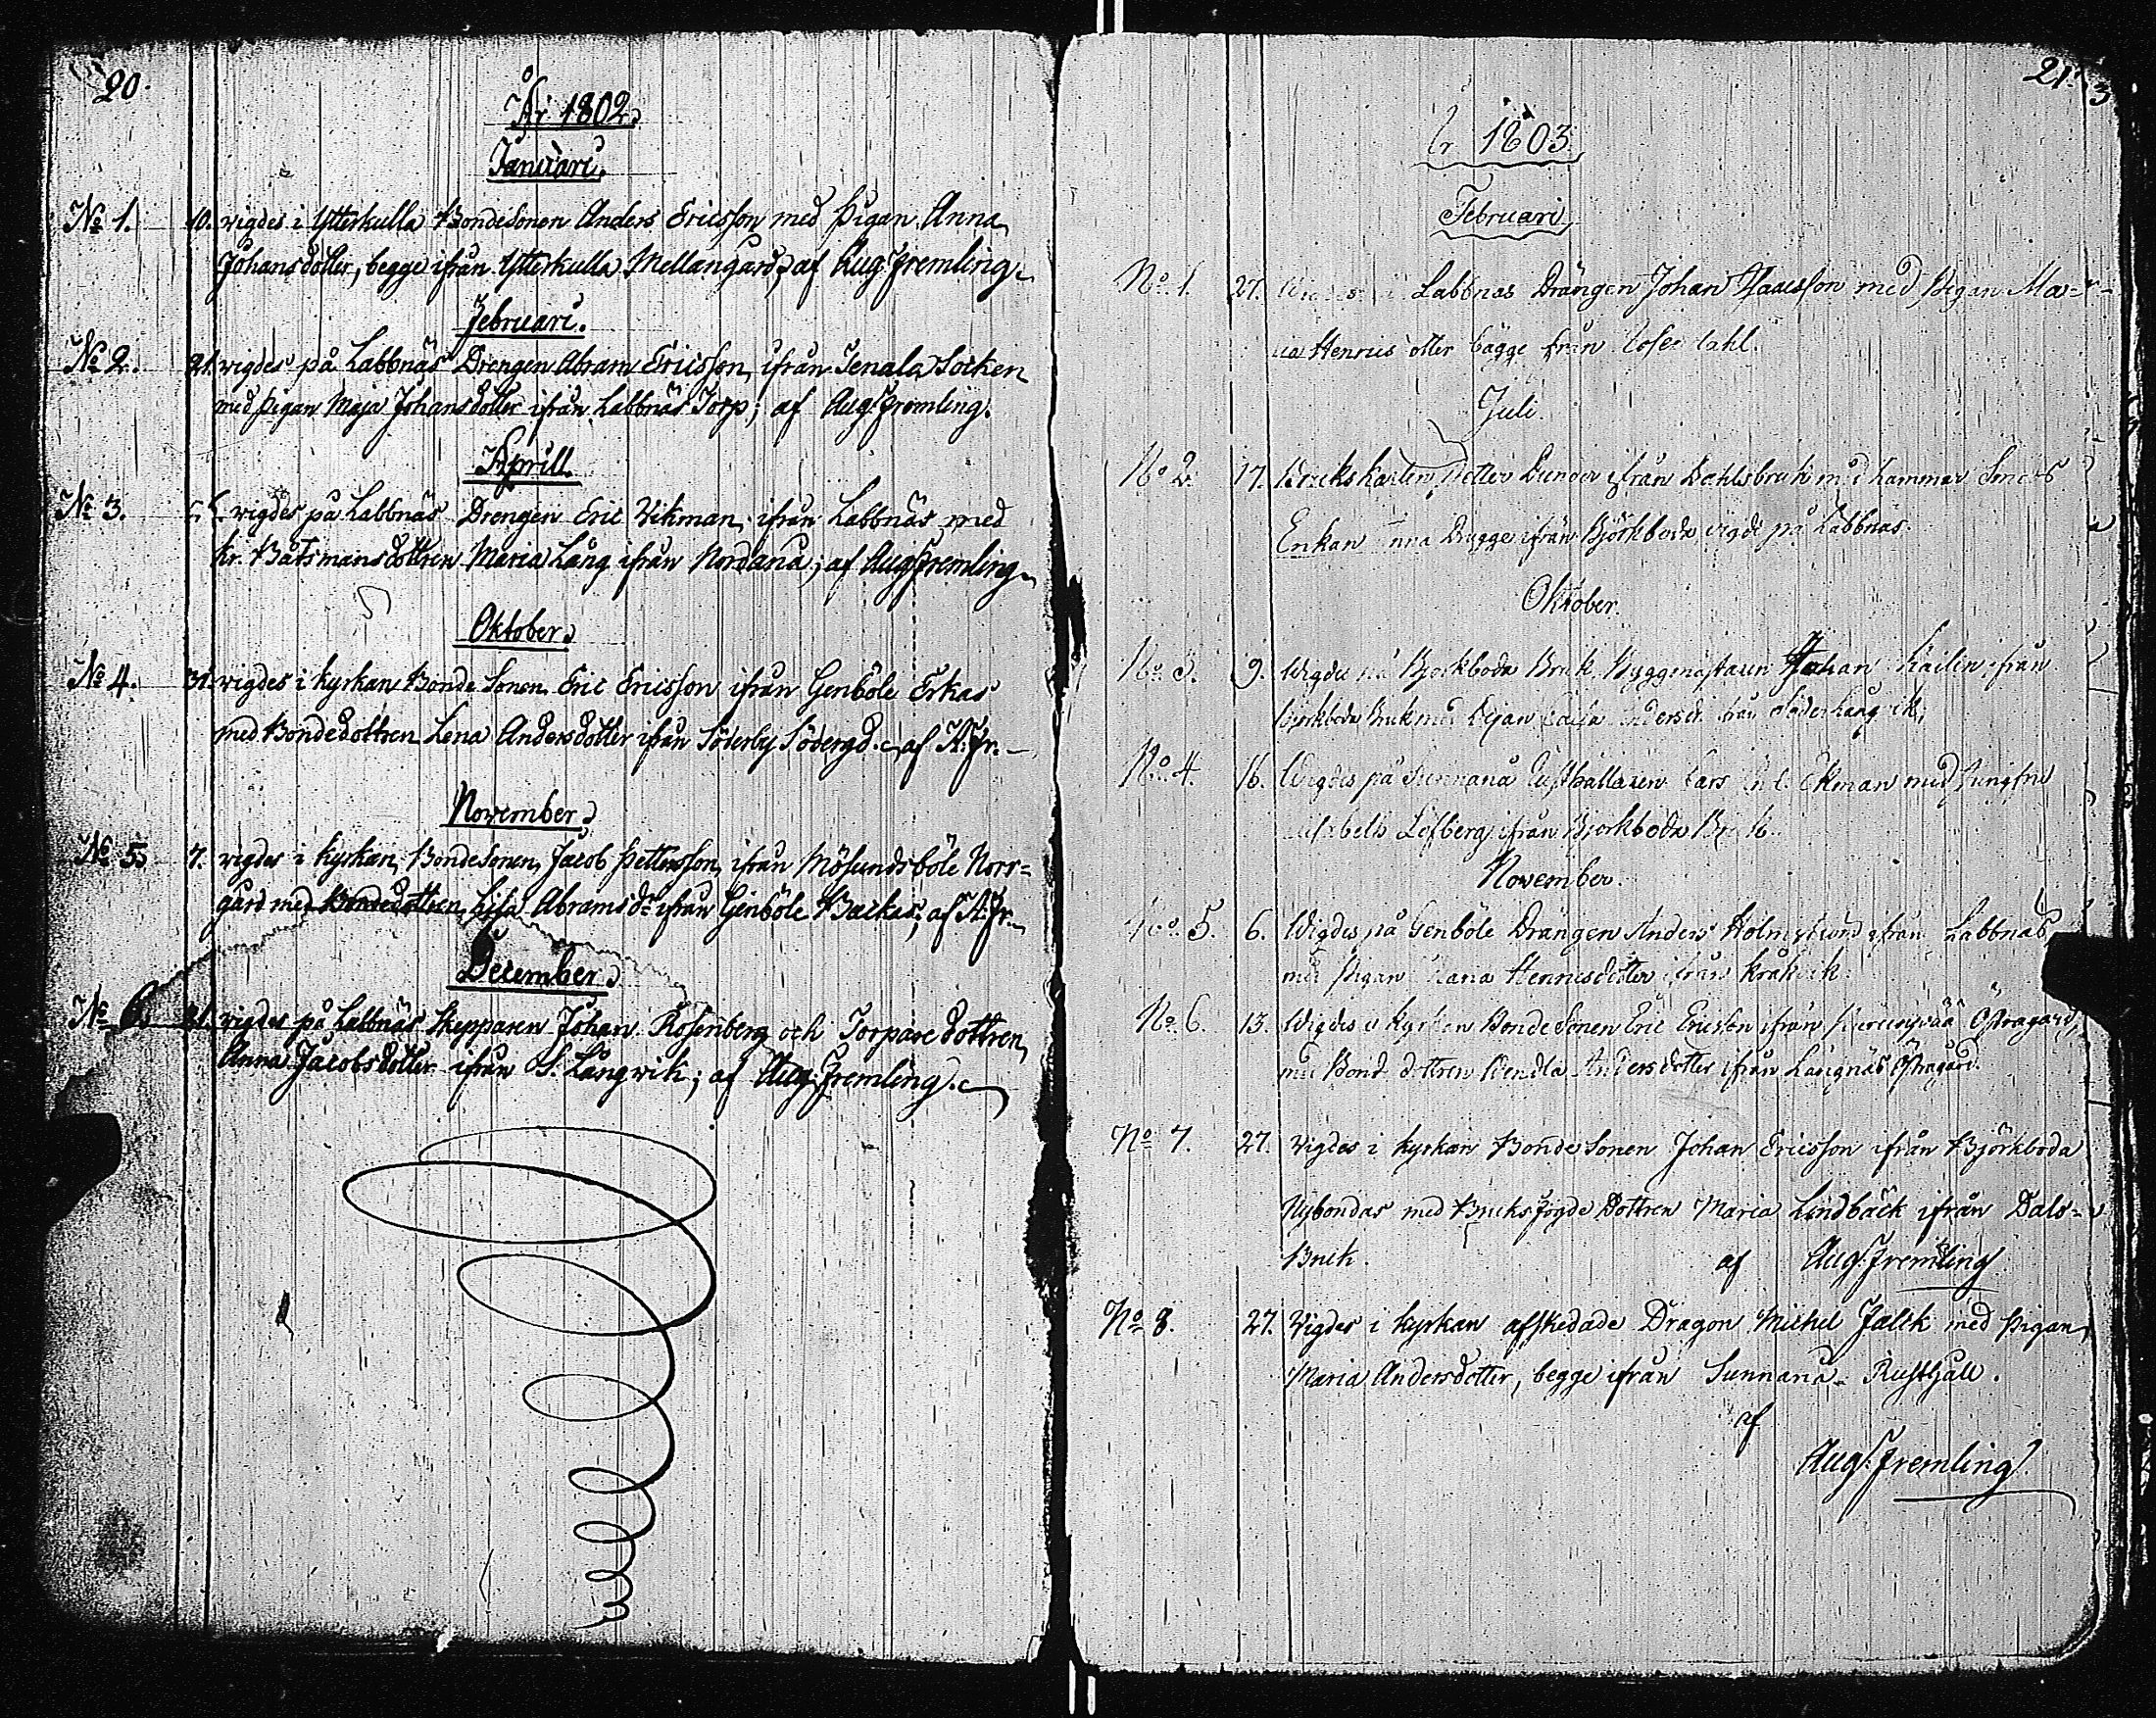 20.
År 1802.
Januari.
No 1. 10. vigdes i Ytterkulla Bondesonen Anders Ericsson med Pigan Anna
Johansdotter, begge ifrån Ytterkulla Mellangård; af Aug: Fremling.
Februari.
No 2. 21. vigdes på Labbnäs Drengen Abram Ericsson ifrån Tenala Socken
med Pigan Maja Johansdotter ifrån Labbnäs Torp; af Aug: Fremling.
Aprill.
No 3. vigdes på Labbnäs Drengen Eric Vikman ifrån Labbnäs med
Kr. Båtsmansdottren Maria Lång ifrån Nordanå; af Aug: Fremling.
Oktober.
No 4. 31. vigdes i kyrkan Bonde Sonen Eric Ericsson ifrån Genböle Erkas
med Bondedottren Lena Andersdotter ifrån Söderby Södergd. af A. Fr.
November.
No 5. 7. vigdes i kyrkan Bondesonen Jacob Pettersson ifrån Mösundsböle Norr=
gård med Bondedottren Lisa Abramsdr ifrån Genböle Backas; af A. Fr.
December.
No 6. 21. vigdes på Labbnäs Skepparen Johan Rosenberg och Torparedottren
Anna Jacobsdotter ifrån S. Långvik; af Aug: Fremling.
21.
1803.
Februari
No 1. 27. i Labbnäs Drängen Johan Isacsson med Pigan Ma=
bägge från
Juli.
No 2. 17. Brukskarlen Petter Dunder ifrån Dahlsbruk med hammar
Enkan Anna Drugge ifrån Björkboda vigde på Labbnäs.
Oktober.
No 3. 9. Wigdes på Björkboda Bruk Byggmästaren Johan ifrån
Björkboda Bruk med Pijan
No 4. 16. Wigdes på Sunnanå Rusthållaren Lars Ekman med Jungfru
Löfberg ifrån Björkboda Bruk.
November.
No 5. 6. Wigdes på Genböle Drängen Anders Holmstrand ifrån Labbnäs
med Pigan Henricsdotter ifrån Kråkvik
No 6. 13. Wigdes i Kyrkan Bonde Sonen Eric Ericsson ifrån Östragård,
med Bonddottren Wendla Andersdotter ifrån Långnäs Östragård.
No 7. 27. vigdes i kyrkan Bonde Sonen Johan Ericsson ifrån Björkboda
Nybondas med Bruksfogde Dottren Maria Lindbäck ifrån Dals=
Bruk. af Aug: Fremling
No 8. 27. Vigdes i kyrkan afskedade Dragon Michel Falck med Pigan
Maria Andersdotter, begge ifrån Sunnanå Rusthåll.
af
Aug: Fremling